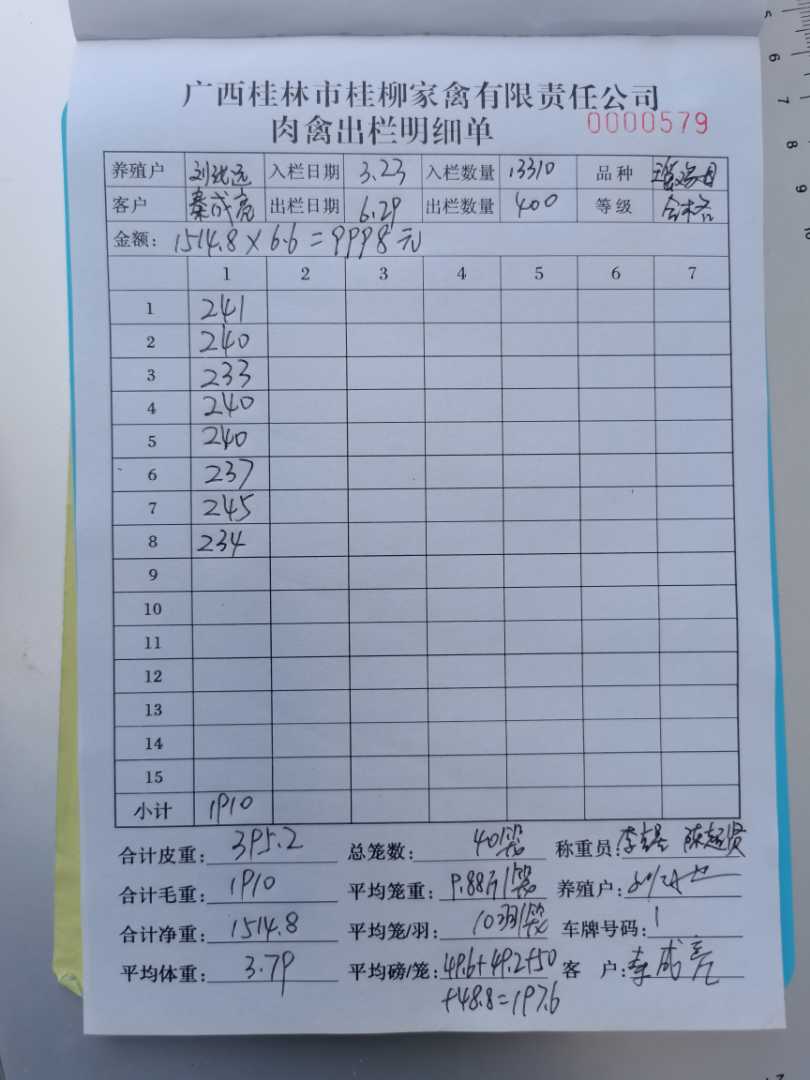 广西桂林市桂柳家禽有限责任公司
肉禽出栏明细单 0000579
养殖户 入栏日期 3.23 入栏数量 13310 品种
客户 秦成亮 出栏日期 6.29 出栏数量 400 等级 合格
金额: 1514.8×6.6=9998元
1 2 3 4 5 6 7
1 241
2 240
3 233
4 240
5 240
6 237
7 245
8 234
9
10
11
12
13
14
15
小计 1910
合计皮重: 395.2 总笼数: 40笼 称重员: 陈超贤
合计毛重: 1910 平均笼重: 9.88斤/笼 养殖户:
合计净重: 1514.8 平均笼/羽: 10羽/笼 车牌号码: 1
平均体重: 3.79 平均磅/笼: 49.6+49.2+50 客户: 秦成亮
+48.8=197.6